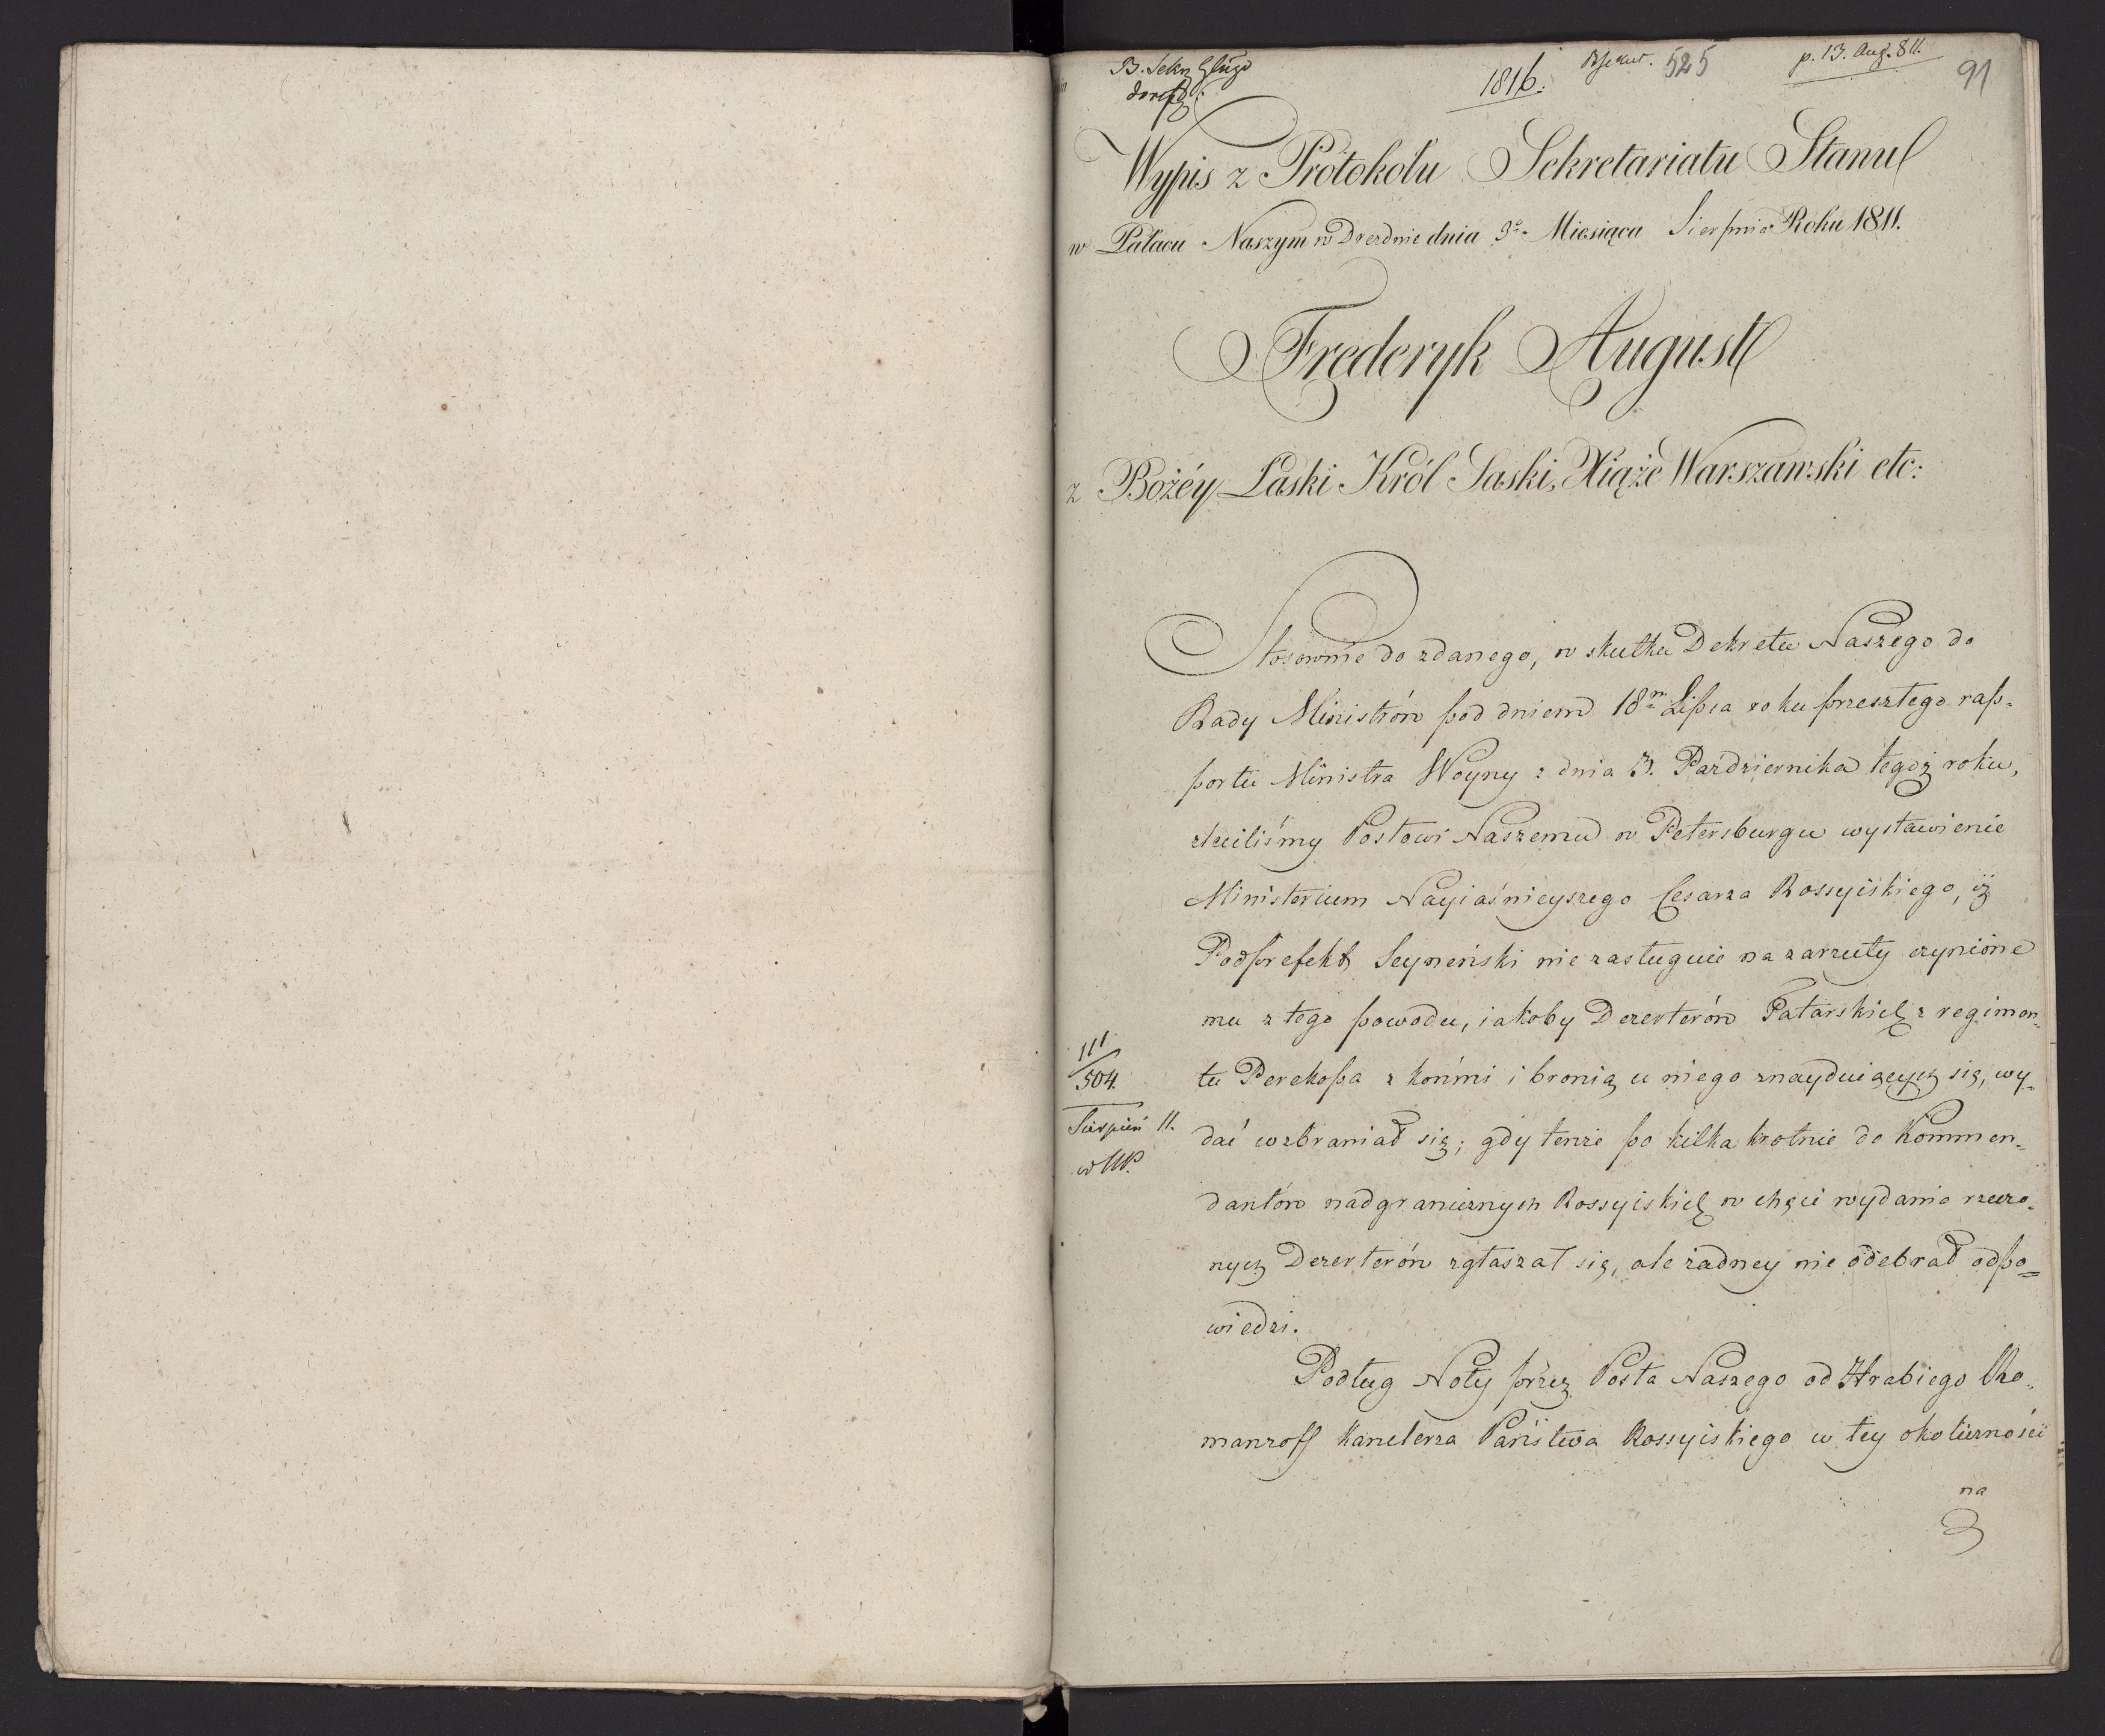 1816.
525
p. 13. Aug. 811.
91
Wypis z Protokołu Sekretariatu Stanu
w Pałacu Naszym w Dreznie dnia 9º Miesiąca Sierpnia Roku 1811.
Frederyk August
z Bożéy Łaski Król Saski, Xiąże Warszawski etc:
Stosownie do zdanego, w skutku Dekretu Naszego do
Rady Ministrów pod dniem 18m Lipca roku przeszłego rap-
portu Ministra Woyny z dnia 3. Października tegoż roku,
zleciliśmy Posłowi Naszemu w Petersburgu wystawienie
Ministerium Nayiaśnieyszego Cesarza Rossyiskiego, iż
Podprefekt Seyneński nie zasługuie na zarzuty czynione
mu z tego powodu, iakoby Dezerterów Tatarskich z regimen-
tu Perekopa z końmi i bronią u niego znayduiących się, wy-
dać wzbraniał się; gdy tenże po kilka krotnie do Kommen-
dantów nadgranicznych Rossyiskich w chęci wydania rzeczo-
nych Dezerterów zgłaszał się, ale żadney nie odebrał odpo=
wiedzi.
Podług Noty przez Posła Naszego od Hrabiego Ro-
manzoff Kanclerza Państwa Rossyiskiego w tey okoliczności
na
111
504.
Sierpień 11.